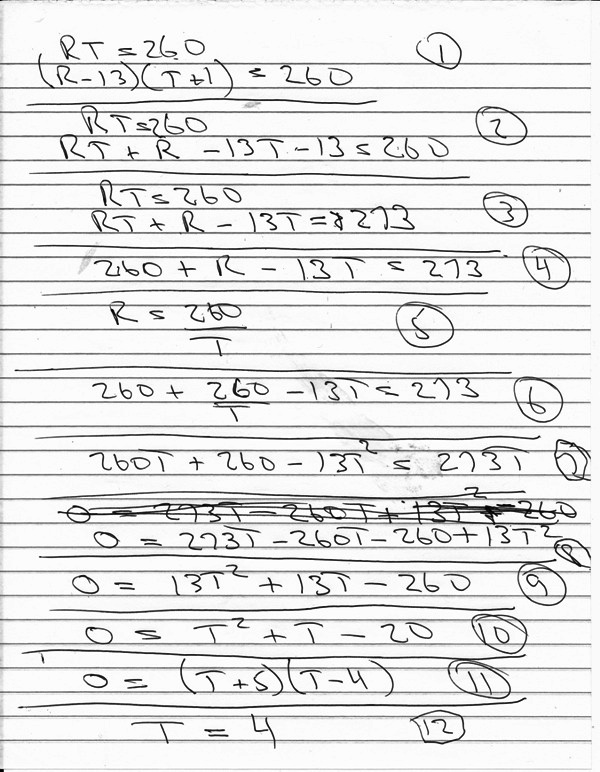 RT = 260 ①
(R-13)(T+1) = 260
RT=260 ②
RT + R - 13T - 13 = 260
RT = 260
RT + R - 13T = 273 ③
260 + R - 13T = 273 ④
R = 260/T ⑤
260 + 260/T - 13T = 273 ⑥
260T + 260 - 13T² = 273T ⑦
0 = 273T - 260T + 13T² - 260
0 = 273T - 260T - 260 + 13T² ⑧
0 = 13T² + 13T - 260 ⑨
0 = T² + T - 20 ⑩
0 = (T+5)(T-4) ⑪
T = 4 ⑫